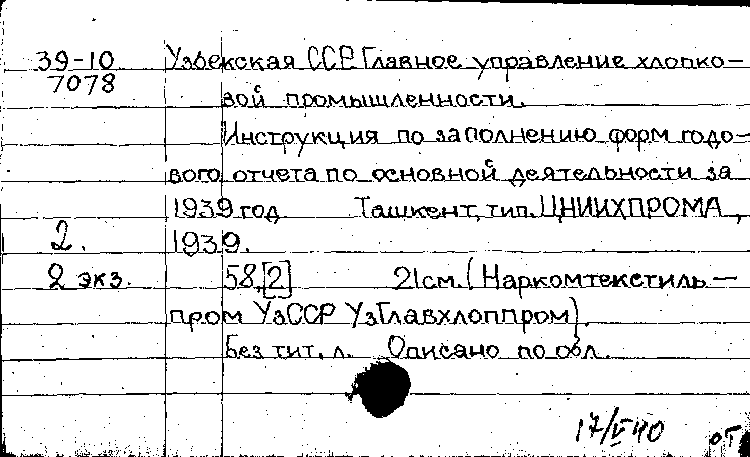 39-10 Узбекская ССР. Главное управление хлопко-
7078
вой промышленности.
Инструкция по заполнению форм годо-
вого отчета по основной деятельности за
1939 год Ташкент, тип. ЦНИИХПРОМА,
2. 1939.
2 экз. 58,[2] 21см. (Наркомтекстиль-
пром УзССР УзГлавхлоппром).
Без тит. л. Описано по обл.
17/V 40 оТ